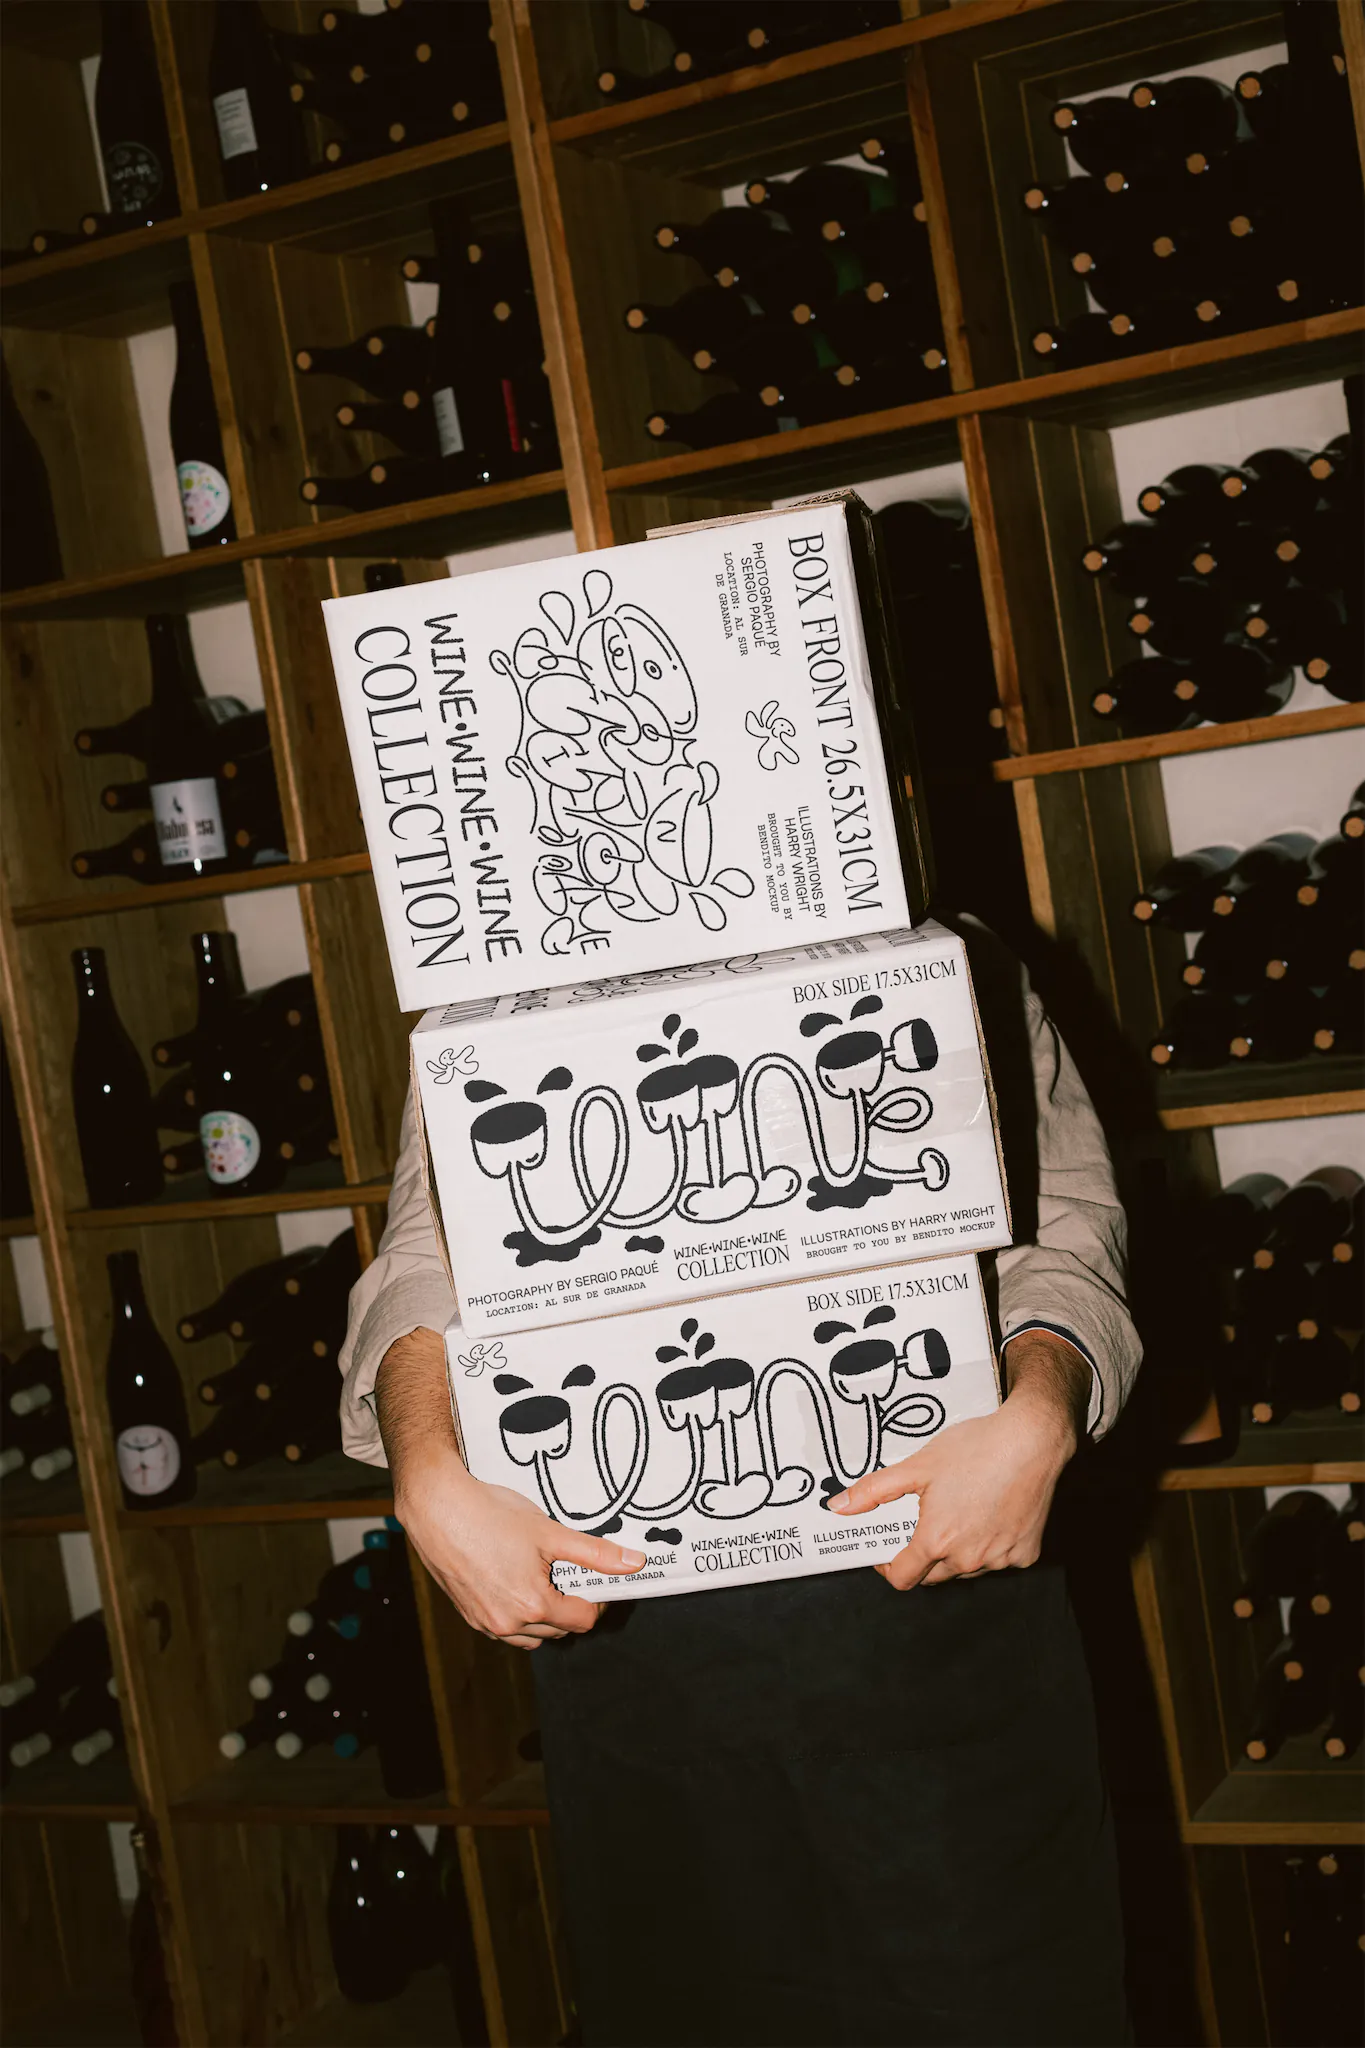 BOX FRONT 26.5X31CM
PHOTOGRAPHY BY
SERGIO PAQUÉ
LOCATION: AL SUR
DE GRANADA
ILLUSTRATIONS BY
HARRY WRIGHT
BROUGHT TO YOU BY
BENDITO MOCKUP
WINE•WINE•WINE
COLLECTION
BOX SIDE 17.5X31CM
WINE
PHOTOGRAPHY BY SERGIO PAQUÉ
LOCATION: AL SUR DE GRANADA
WINE•WINE•WINE
COLLECTION
ILLUSTRATIONS BY HARRY WRIGHT
BROUGHT TO YOU BY BENDITO MOCKUP
BOX SIDE 17.5X31CM
WINE
APHY B
PAQUÉ
: AL SUR DE GRANADA
WINE•WINE•WINE
COLLECTION
ILLUSTRATIONS BY
BROUGHT TO YOU B